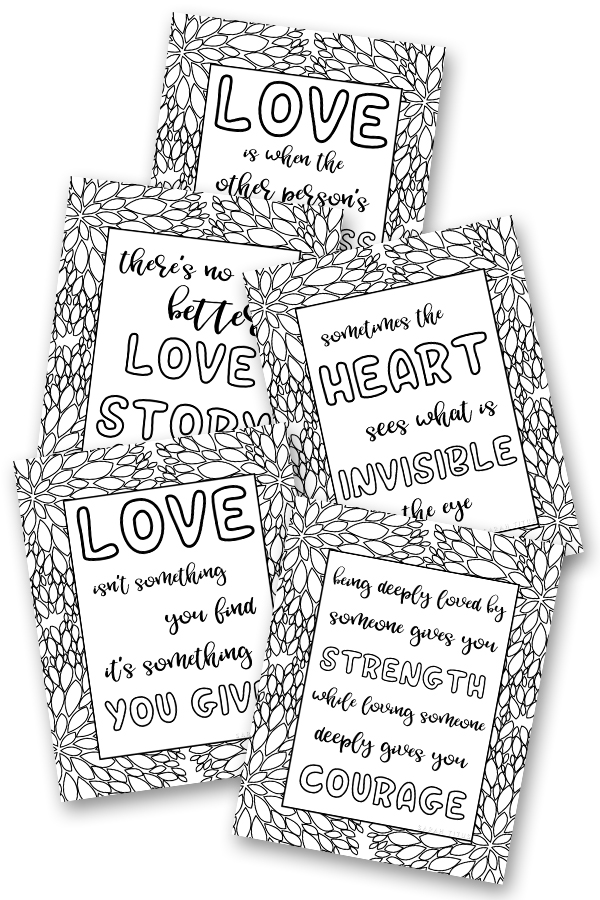 LOVE
is when the
other person's
there's no
better
LOVE
STORY
sometimes the
HEART
sees what is
INVISIBLE
the eye
LOVE
isn't something
you find
it's something
YOU GIV
being deeply loved by
someone gives you
STRENGTH
while loving someone
deeply gives you
COURAGE